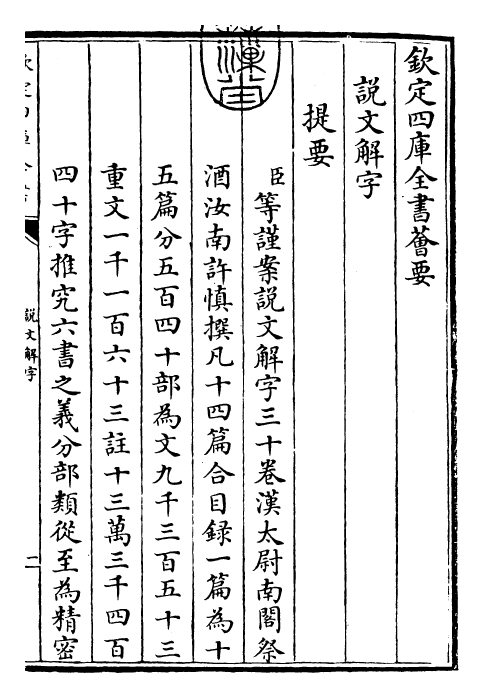 欽定四庫全書薈要
説文解字
提要
臣等謹案説文解字三十卷漢太尉南閣祭
酒汝南許慎撰凡十四篇合目録一篇為十
五篇分五百四十部為文九千三百五十三
重文一千一百六十三註十三萬三千四百
四十字推究六書之義分部類從至為精密
説文解字
一